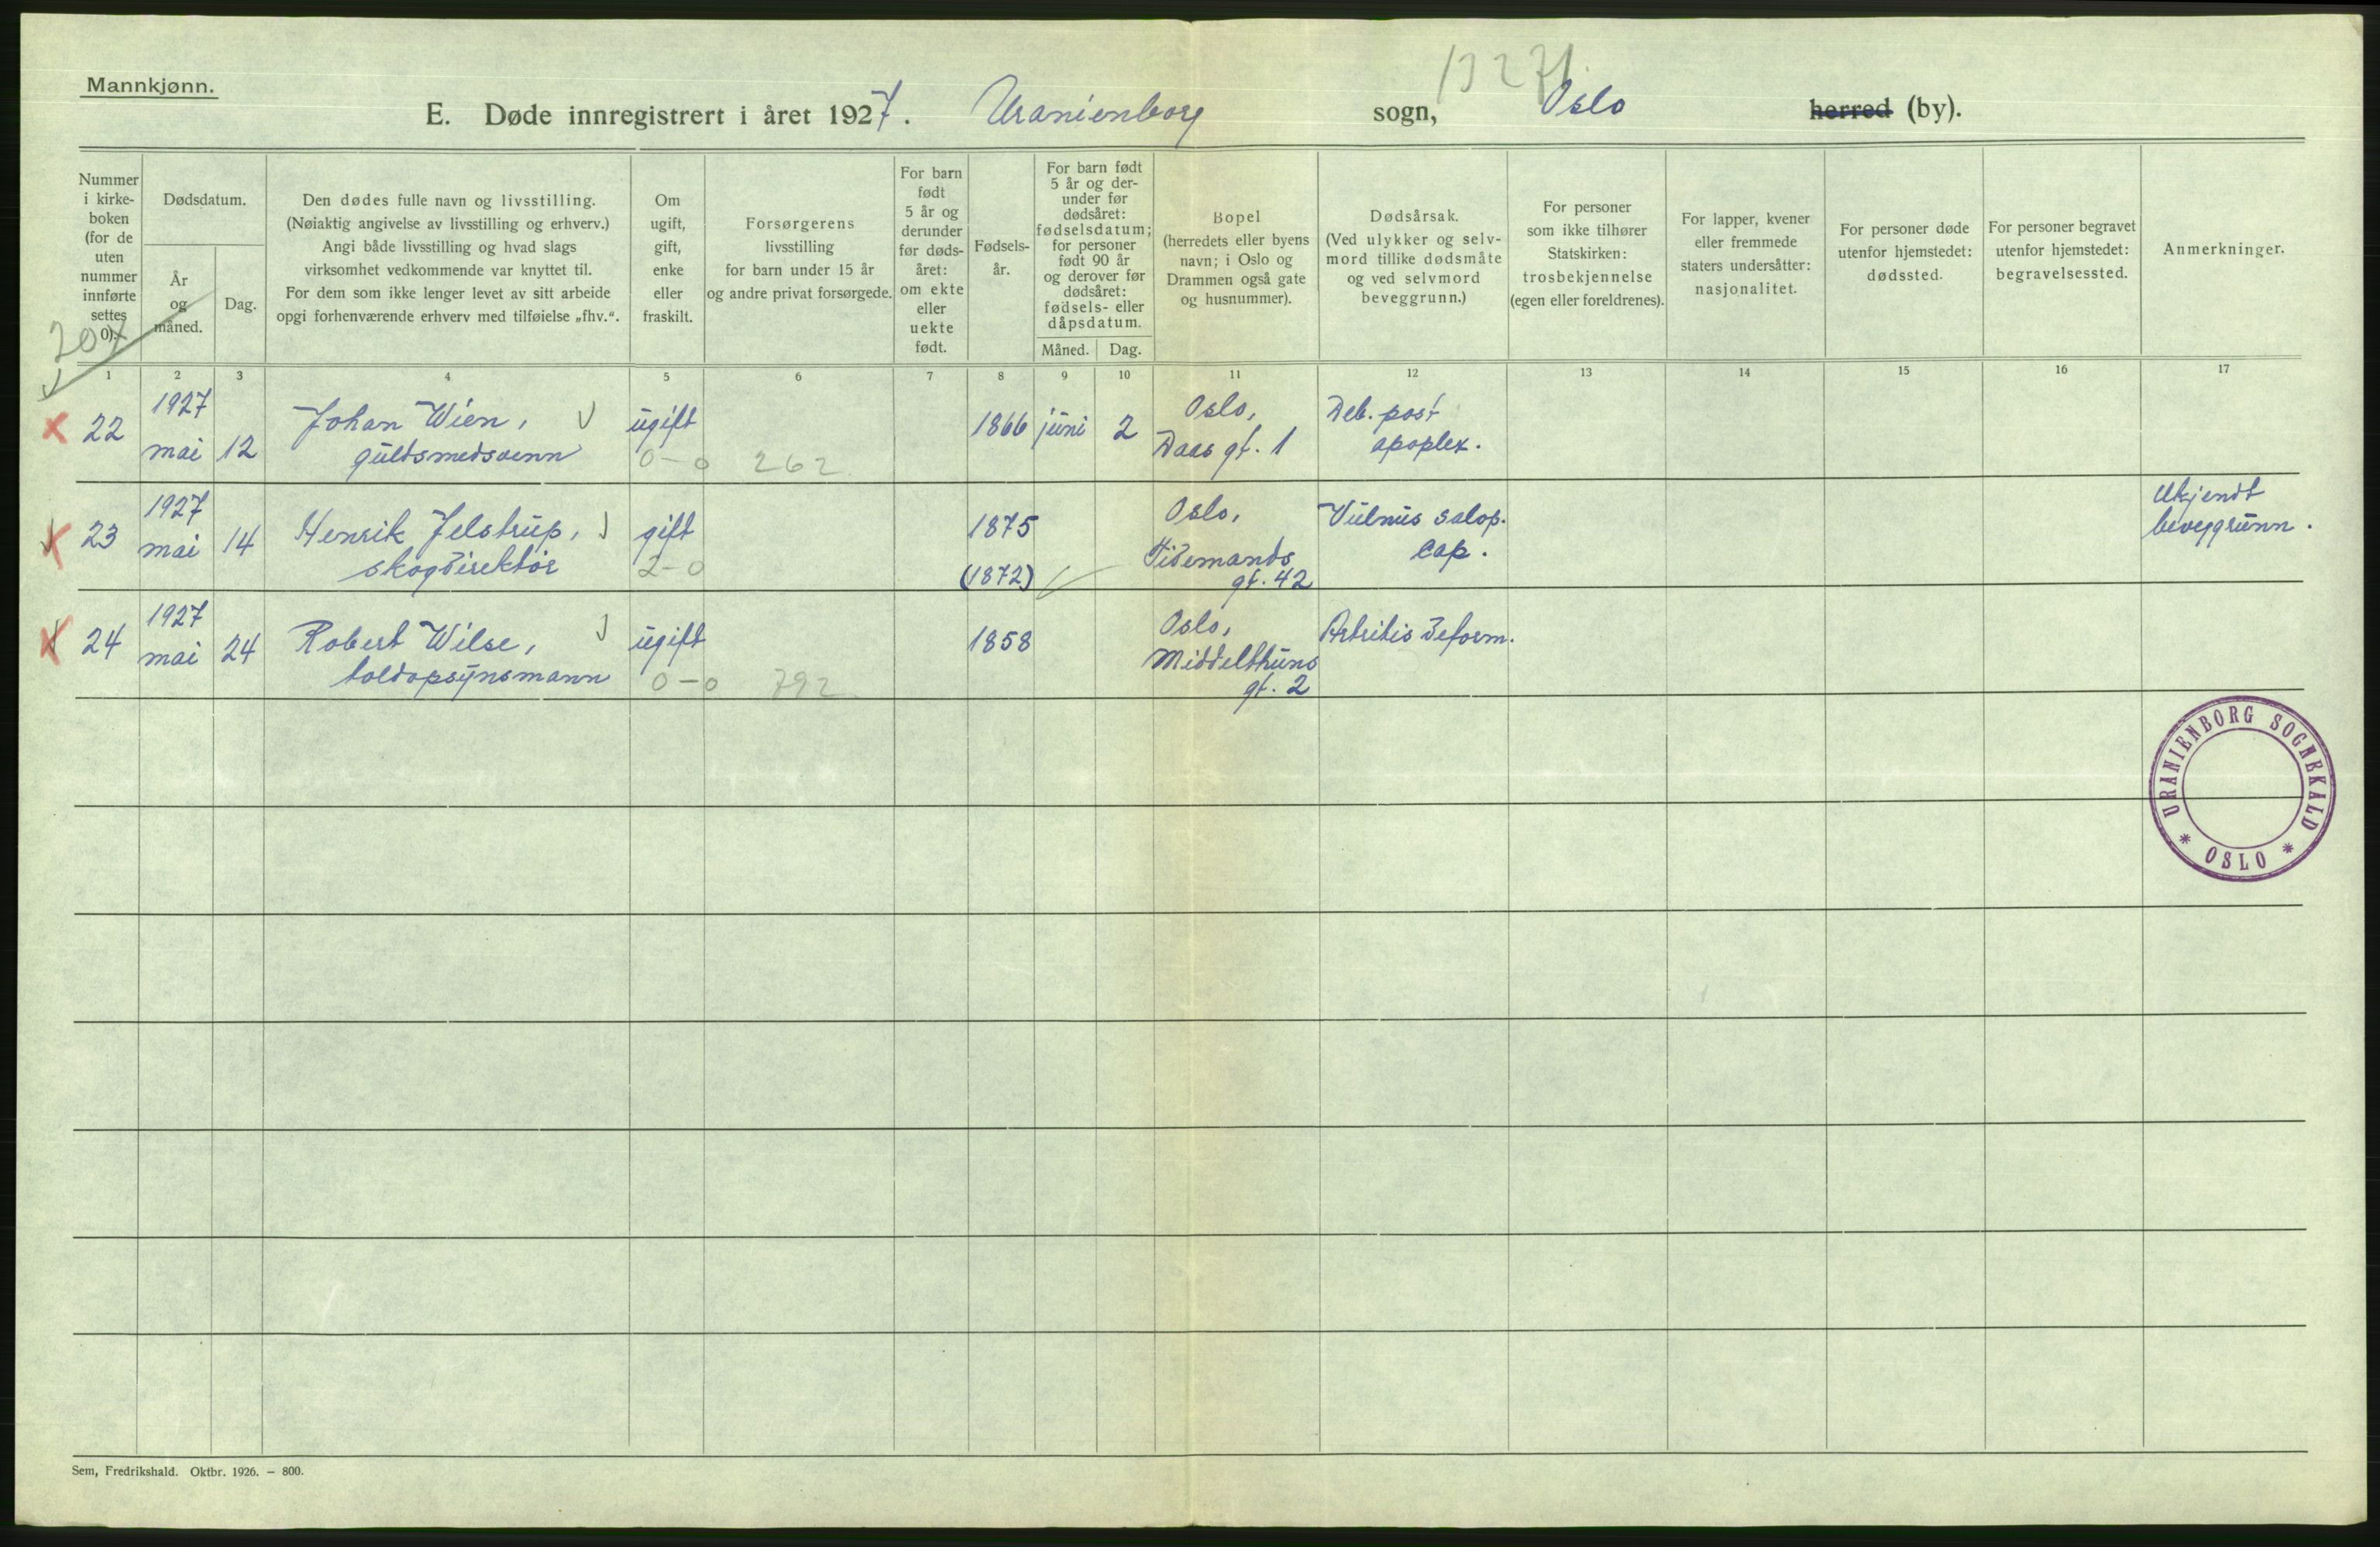 Mannkjønn.
1327
E. Døde innregistrert i året 1927. Uranienborg sogn, Oslo herred (by).
Nummer
i kirke-
boken
(for de
uten
nummer
innførte
settes
0).
Dødsdatum.
År
og
måned.
Dag.
Den dødes fulle navn og livsstilling.
(Nøiaktig angivelse av livsstilling og erhverv.)
Angi både livsstilling og hvad slags
virksomhet vedkommende var knyttet til.
For dem som ikke lenger levet av sitt arbeide
opgi forhenværende erhverv med tilføielse „fhv.“.
Om
ugift,
gift,
enke
eller
fraskilt.
Forsørgerens
livsstilling
for barn under 15 år
og andre privat forsørgede.
For barn
født
5 år og
derunder
før døds-
året:
om ekte
eller
uekte
født.
Fødsels-
år.
For barn født
5 år og der-
under før
dødsåret:
fødselsdatum;
for personer
født 90 år
og derover før
dødsåret:
fødsels- eller
dåpsdatum.
Måned. Dag.
Bopel
(herredets eller byens
navn; i Oslo og
Drammen også gate
og husnummer).
Dødsårsak.
(Ved ulykker og selv-
mord tillike dødsmåte
og ved selvmord
beveggrunn.)
For personer
som ikke tilhører
Statskirken:
trosbekjennelse
(egen eller foreldrenes).
For lapper, kvener
eller fremmede
staters undersåtter:
nasjonalitet.
For personer døde
utenfor hjemstedet:
dødssted.
For personer begravet
utenfor hjemstedet:
begravelsessted.
Anmerkninger.
207
1 2 3 4 5 6 7 8 9 10 11 12 13 14 15 16 17
22
1927
mai 12
Johan Wien,
guldsmedsvenn
ugift
0-0 262
1866 juni 2
Oslo,
Daas gt. 1
Deb. post
apoplex.
23
1927
mai 14
Henrik Jelstrup,
skogdirektør
gift
2-0
1875
(1872)
Oslo,
Tidemands
gt. 42
Vulnus sclop.
cap.
Ukjendt
beveggrunn.
24
1927
mai 24
Robert Wilse,
toldopsynsmann
ugift
0-0 792
1858
Oslo,
Middelthuns
gt. 2
Artritis deform.
URANIENBORG SOGNEKALD
* OSLO *
Sem, Fredrikshald. Oktbr. 1926. — 800.